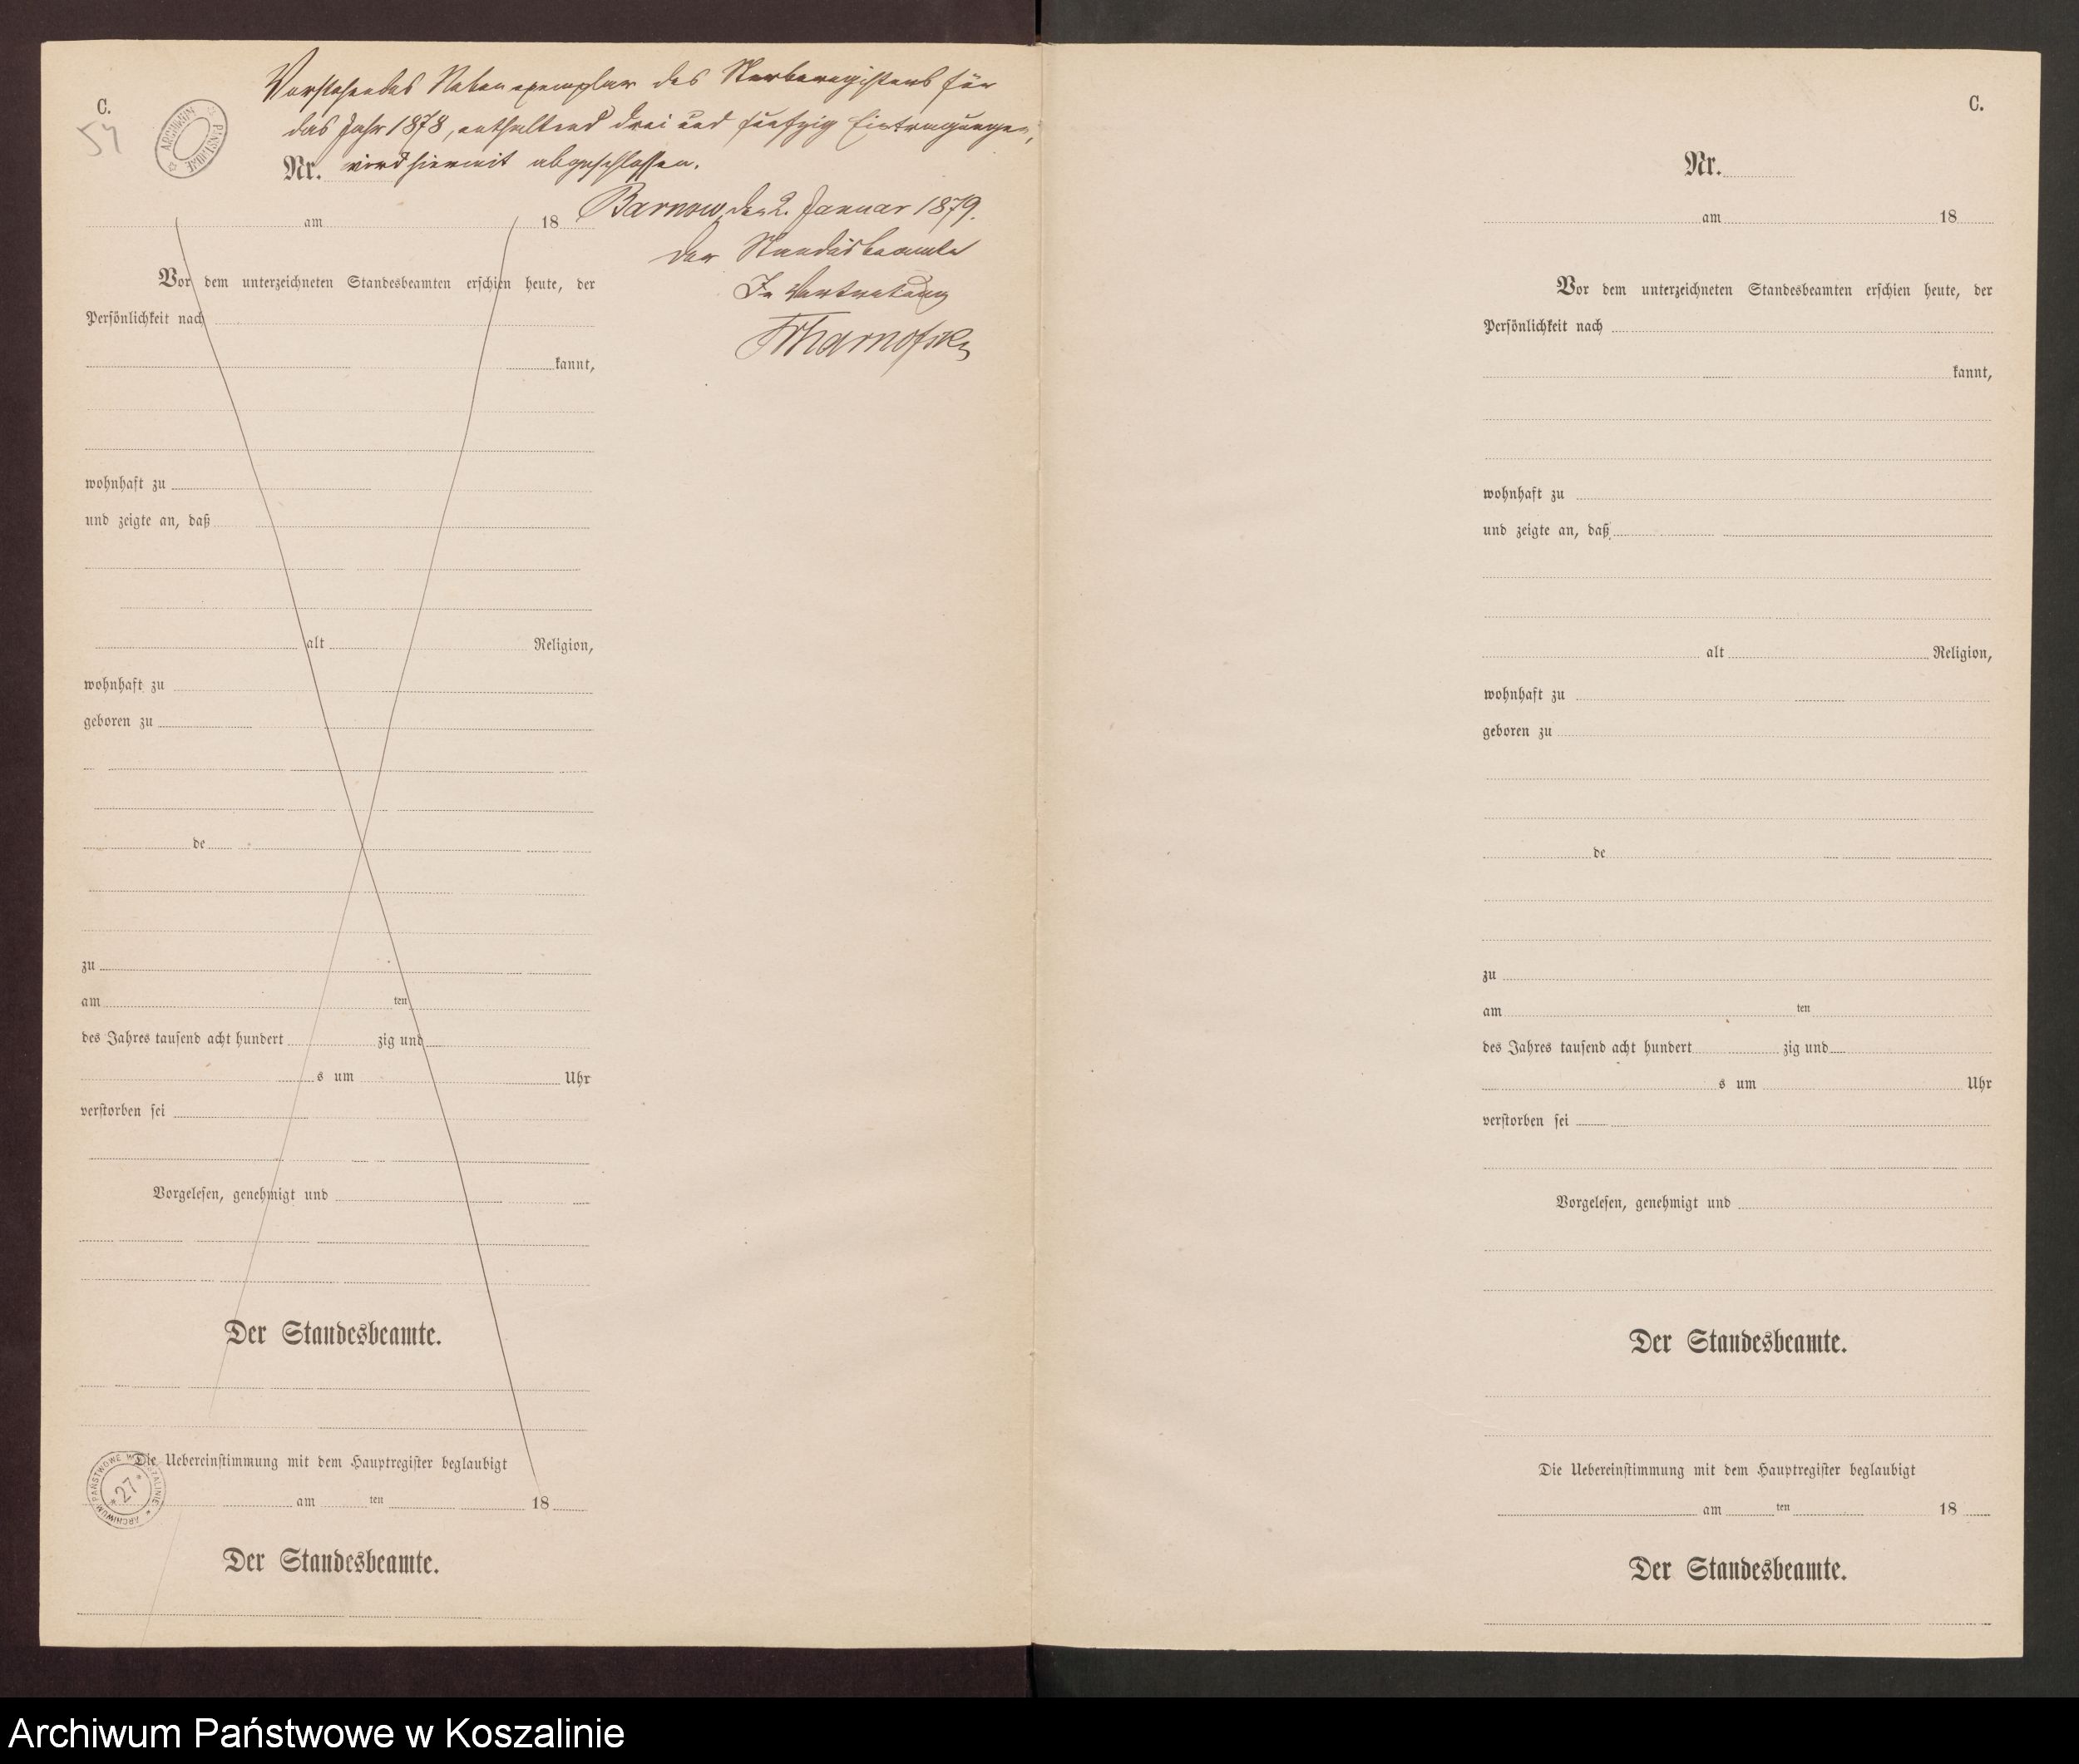 C.
54
ARCHIWUM PAŃSTWOWE
Vorstehendes Nebenexemplar des Sterberegisters für
das Jahr 1878, enthaltend drei und fünfzig Eintragungen,
Nr. wird hiermit abgeschlossen.
Barnow, den 2. Januar 1879.
Der Standesbeamte
In Vertretung
am 18
Vor dem unterzeichneten Standesbeamten erschien heute, der
Persönlichkeit nach
kannt,
wohnhaft zu
und zeigte an, daß
alt Religion,
wohnhaft zu
geboren zu
de
zu
am ten
des Jahres tausend acht hundert zig und
s um Uhr
verstorben sei
Vorgelesen, genehmigt und
Der Standesbeamte.
Die Uebereinstimmung mit dem Hauptregister beglaubigt
am ten 18
ARCHIWUM PAŃSTWOWE W KOSZALINIE
* 27 *
Der Standesbeamte.
C.
Nr.
am 18
Vor dem unterzeichneten Standesbeamten erschien heute, der
Persönlichkeit nach
kannt,
wohnhaft zu
und zeigte an, daß
alt Religion,
wohnhaft zu
geboren zu
de
zu
am ten
des Jahres tausend acht hundert zig und
s um Uhr
verstorben sei
Vorgelesen, genehmigt und
Der Standesbeamte.
Die Uebereinstimmung mit dem Hauptregister beglaubigt
am ten 18
Der Standesbeamte.
Archiwum Państwowe w Koszalinie